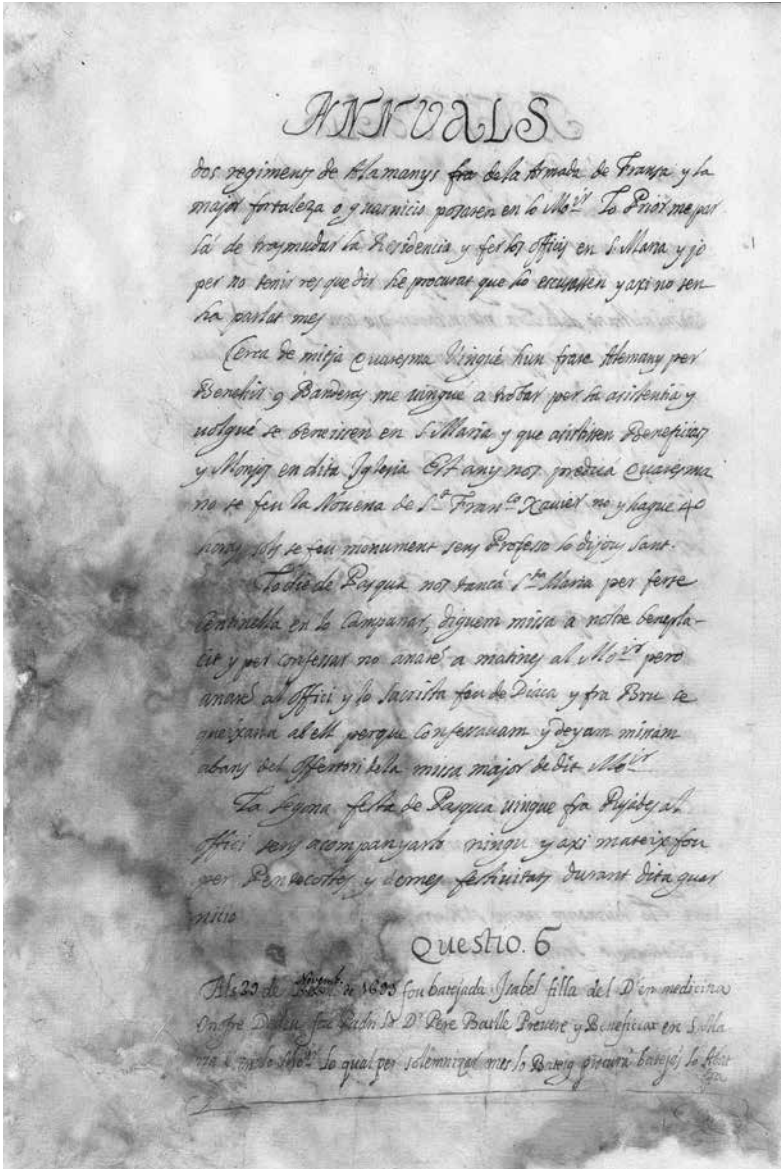 ANNUALS
dos regiments de Alamanys fra de la Armada de Fransa y la
major fortaleza o guarnicio posaren en lo Mo.ir Lo Prior me par
lá de trasmudar la Residencia y fer los officis en S. Maria y jo
per no tenir res que dir he procurat que ho escusassen y axi no sen
ha parlat mes
Cerca de mitja Quaresma Vingué hun frare Alemany per
Benehir 9 Banderas me vingué a trobar per la asistentia y
volgué se beneissen en S. Maria y que asistissen Beneficiats
y Monjos en dita Iglesia Est any nos predicá Quaresma
no se feu la Novena de S.t Fran.co Xavier no y hague 40
horas sols se feu monument sens Professo lo dijous sant.
Lo die de Pasqua nos tancá S.ta Maria per ferse
Centinella en lo Campanar, diguem missa a nostre benepla-
cit y per confessar no anarem a matines al Mo.ir pero
anarem al offici y lo Sacrista feu de Diaca y fra Bru se
queixava ab ell perque Confessavam y deyam missam
abans del offertori de la missa major de dit Mo.ir
La segona festa de Pasqua vingue fra al
offici sens acompanyarlo ningu y axi mateix fou
per Pentecostes y demes festivitats durant dita guar
nicio
Questio. 6
Als 29 de Novemb. de 1693 fou batejada Isabel filla del D.r en medicina
Onofre fou Padri lo D.r Pere Batlle Prevere y Beneficiat en S. Ma
ria lo qual per solemnizar mes lo Bateig procurá batejás lo